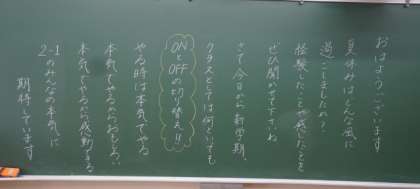 おはようございます
夏休みはどんな風に
過ごしましたか?
経験したことや感じたことを
ぜひ聞かせて下さいね
さて今日から新学期、
クラスとしては何といっても
ONとOFFの切り替え!!
やる時は本気でやる
本気でやるからおもしろい
本気でやるから感動できる
2-1のみんなの本気に
期待しています